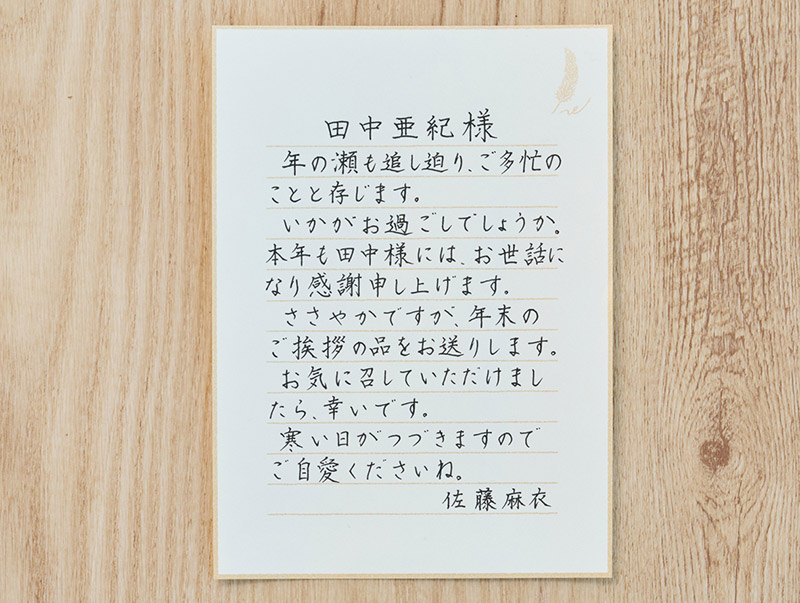 田中亜紀様
年の瀬も追し迫り、ご多忙の
ことと存じます。
いかがお過ごしでしょうか。
本年も田中様には、お世話に
なり感謝申し上げます。
ささやかですが、年末の
ご挨拶の品をお送りします。
お気に召していただけまし
たら、幸いです。
寒い日がつづきますので
ご自愛くださいね。
佐藤麻衣